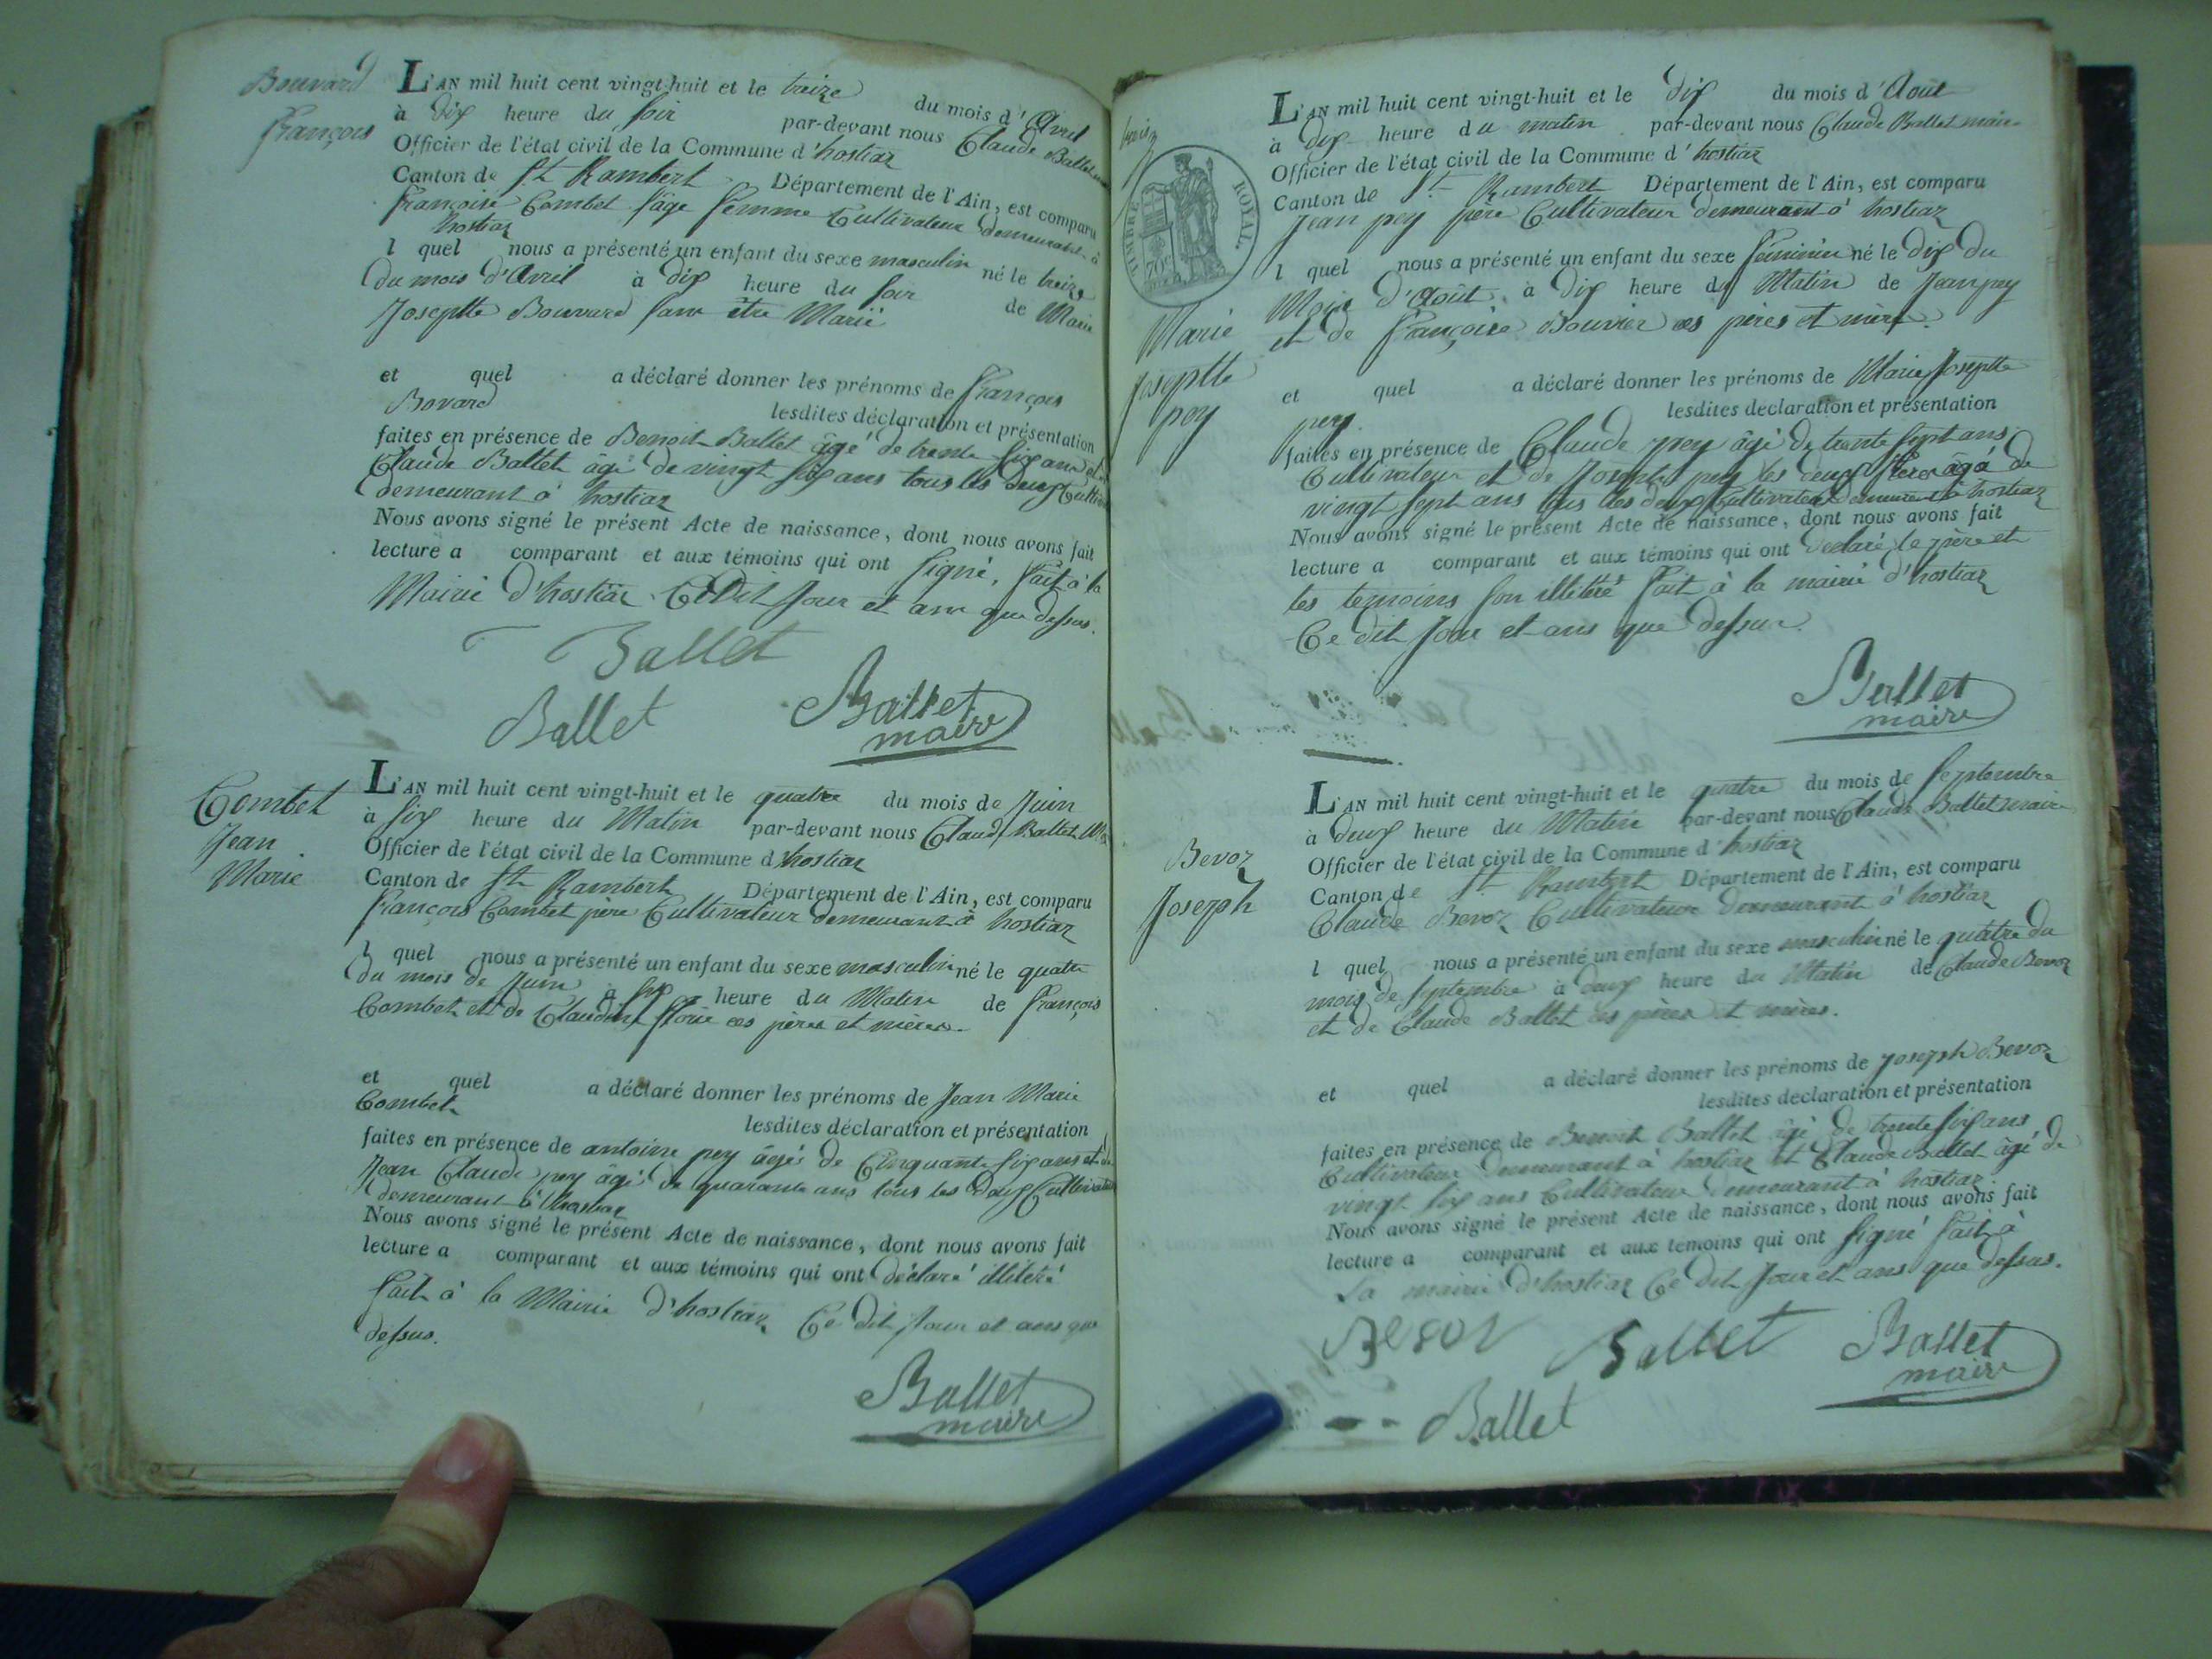 Bouvard
François
L'AN mil huit cent vingt-huit et le treize du mois d'Avril
à dix heure du soir par-devant nous Claude Ballet
Officier de l'état civil de la Commune d'hostiaz
Canton de St Rambert Département de l'Ain, est comparu
françoise Combet sage femme Cultivateur demeurant à
hostiaz
l quel nous a présenté un enfant du sexe masculin né le treize
du mois d'Avril à dix heure du soir de Marie
Josephte Bouvard sans être Marié
et quel a déclaré donner les prénoms de françois
Bovard lesdites déclaration et présentation
faites en présence de Benoit Ballet âgé de trente six ans et
Claude Ballet âgé de vingt six ans tous les deux
demeurant à hostiaz
Nous avons signé le présent Acte de naissance, dont nous avons fait
lecture a comparant et aux témoins qui ont signé, fait à la
Mairie d'hostiaz Ce Dit Jour et ans que dessus.
Ballet
Ballet Ballet
maire
Combet
Jean
Marie
L'AN mil huit cent vingt-huit et le quatre du mois de Juin
à six heure du Matin par-devant nous Claude Ballet
Officier de l'état civil de la Commune d'hostiaz
Canton de St Rambert Département de l'Ain, est comparu
françois Combet père Cultivateur demeurant à hostiaz
l quel nous a présenté un enfant du sexe masculin né le quatre
du mois de Juin à six heure du Matin de françois
Combet et de ces pères et mères.
et quel a déclaré donner les prénoms de Jean Marie
Combet lesdites déclaration et présentation
faites en présence de antoine pey âgés de Cinquante six ans et
Jean Claude pey âgé de quarante ans tous les deux
demeurant à hostiaz
Nous avons signé le présent Acte de naissance, dont nous avons fait
lecture a comparant et aux témoins qui ont déclaré illitéré
fait à la Mairie d'hostiaz Ce dit Jour et ans que
dessus.
Ballet
maire
TIMBRE ROYAL
70c
Marie
Josephte
pey
L'AN mil huit cent vingt-huit et le dix du mois d'Août
à dix heure du matin par-devant nous Claude Ballet maire
Officier de l'état civil de la Commune d'hostiaz
Canton de St Rambert Département de l'Ain, est comparu
Jean pey père Cultivateur demeurant à hostiaz
l quel nous a présenté un enfant du sexe féminin né le dix du
Mois d'Août à dix heure du Matin de Jean pey
et de françoise Bouvier ces pères et mère.
et quel a déclaré donner les prénoms de Marie Josephte
pey. lesdites déclaration et présentation
faites en présence de Claude pey âgé de trente sept ans
Cultivateur et de Joseph pey les deux âgé de
vingt sept ans tous les deux Cultivateur demeurent à hostiaz
Nous avons signé le présent Acte de naissance, dont nous avons fait
lecture a comparant et aux témoins qui ont déclaré le père et
les temoins son illitéré fait à la mairie d'hostiaz
Ce dit Jour et ans que dessus.
Ballet
maire
Bevoz
Joseph
L'AN mil huit cent vingt-huit et le quatre du mois de septembre
à deux heure du Matin par-devant nous Claude Ballet maire
Officier de l'état civil de la Commune d'hostiaz
Canton de St Rambert Département de l'Ain, est comparu
Claude Bevoz Cultivateur demeurant à hostiaz
l quel nous a présenté un enfant du sexe masculin né le quatre du
mois de septembre à deux heure du Matin de Claude Bevoz
et de Claude Ballet ces pères et mères.
et quel a déclaré donner les prénoms de Joseph Bevoz
lesdites déclaration et présentation
faites en présence de Benoit Ballet âgé de trente six ans
Cultivateur demeurant à hostiaz et Claude Ballet âgé de
vingt six ans Cultivateur demeurant à hostiaz
Nous avons signé le présent Acte de naissance, dont nous avons fait
lecture a comparant et aux témoins qui ont signé fait à
la mairie d'hostiaz Ce dit Jour et ans que dessus.
Bevoz Ballet Ballet
maire
Ballet